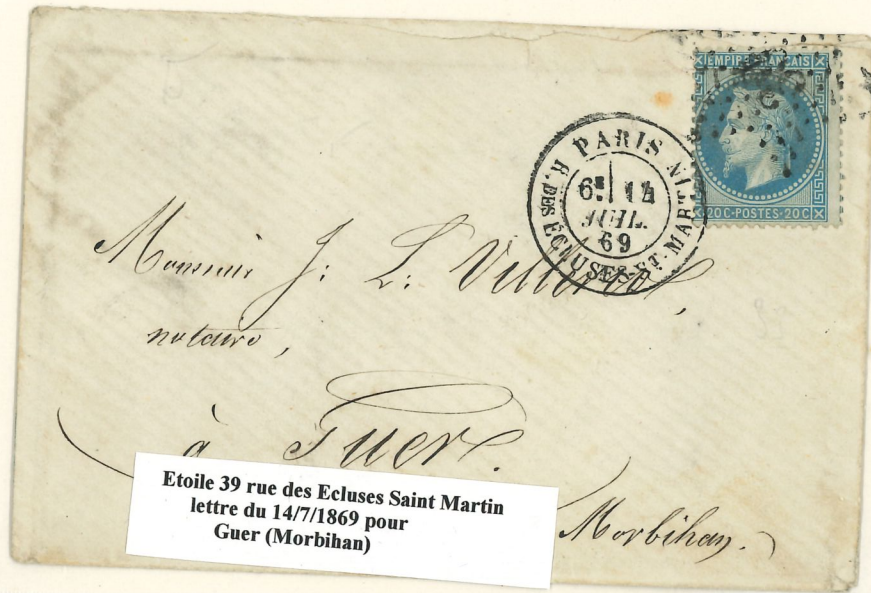 EMPIRE FRANÇAIS
20 C-POSTES-20 C
PARIS
R. DES ÉCLUSES-ST-MARTIN
6E 14
JUIL.
69
Monsieur J: L:
notaire,
à Guer.
Morbihan.
Etoile 39 rue des Ecluses Saint Martin
lettre du 14/7/1869 pour
Guer (Morbihan)